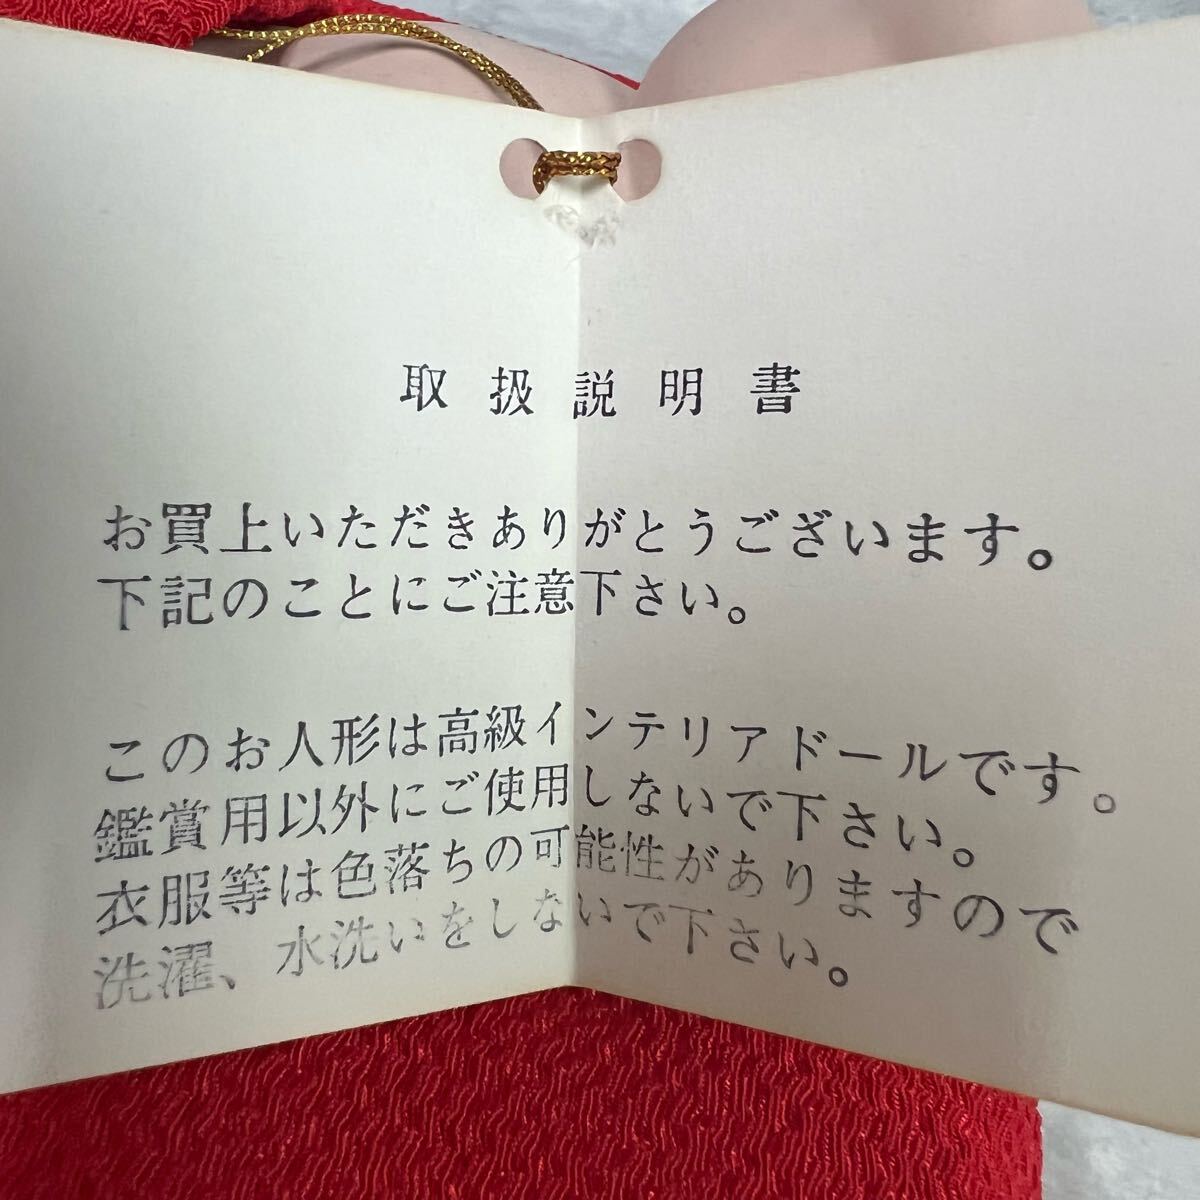 取扱説明書
お買上いただきありがとうございます。
下記のことにご注意下さい。
このお人形は高級インテリアドールです。
鑑賞用以外にご使用しないで下さい。
衣服等は色落ちの可能性がありますので
洗濯、水洗いをしないで下さい。